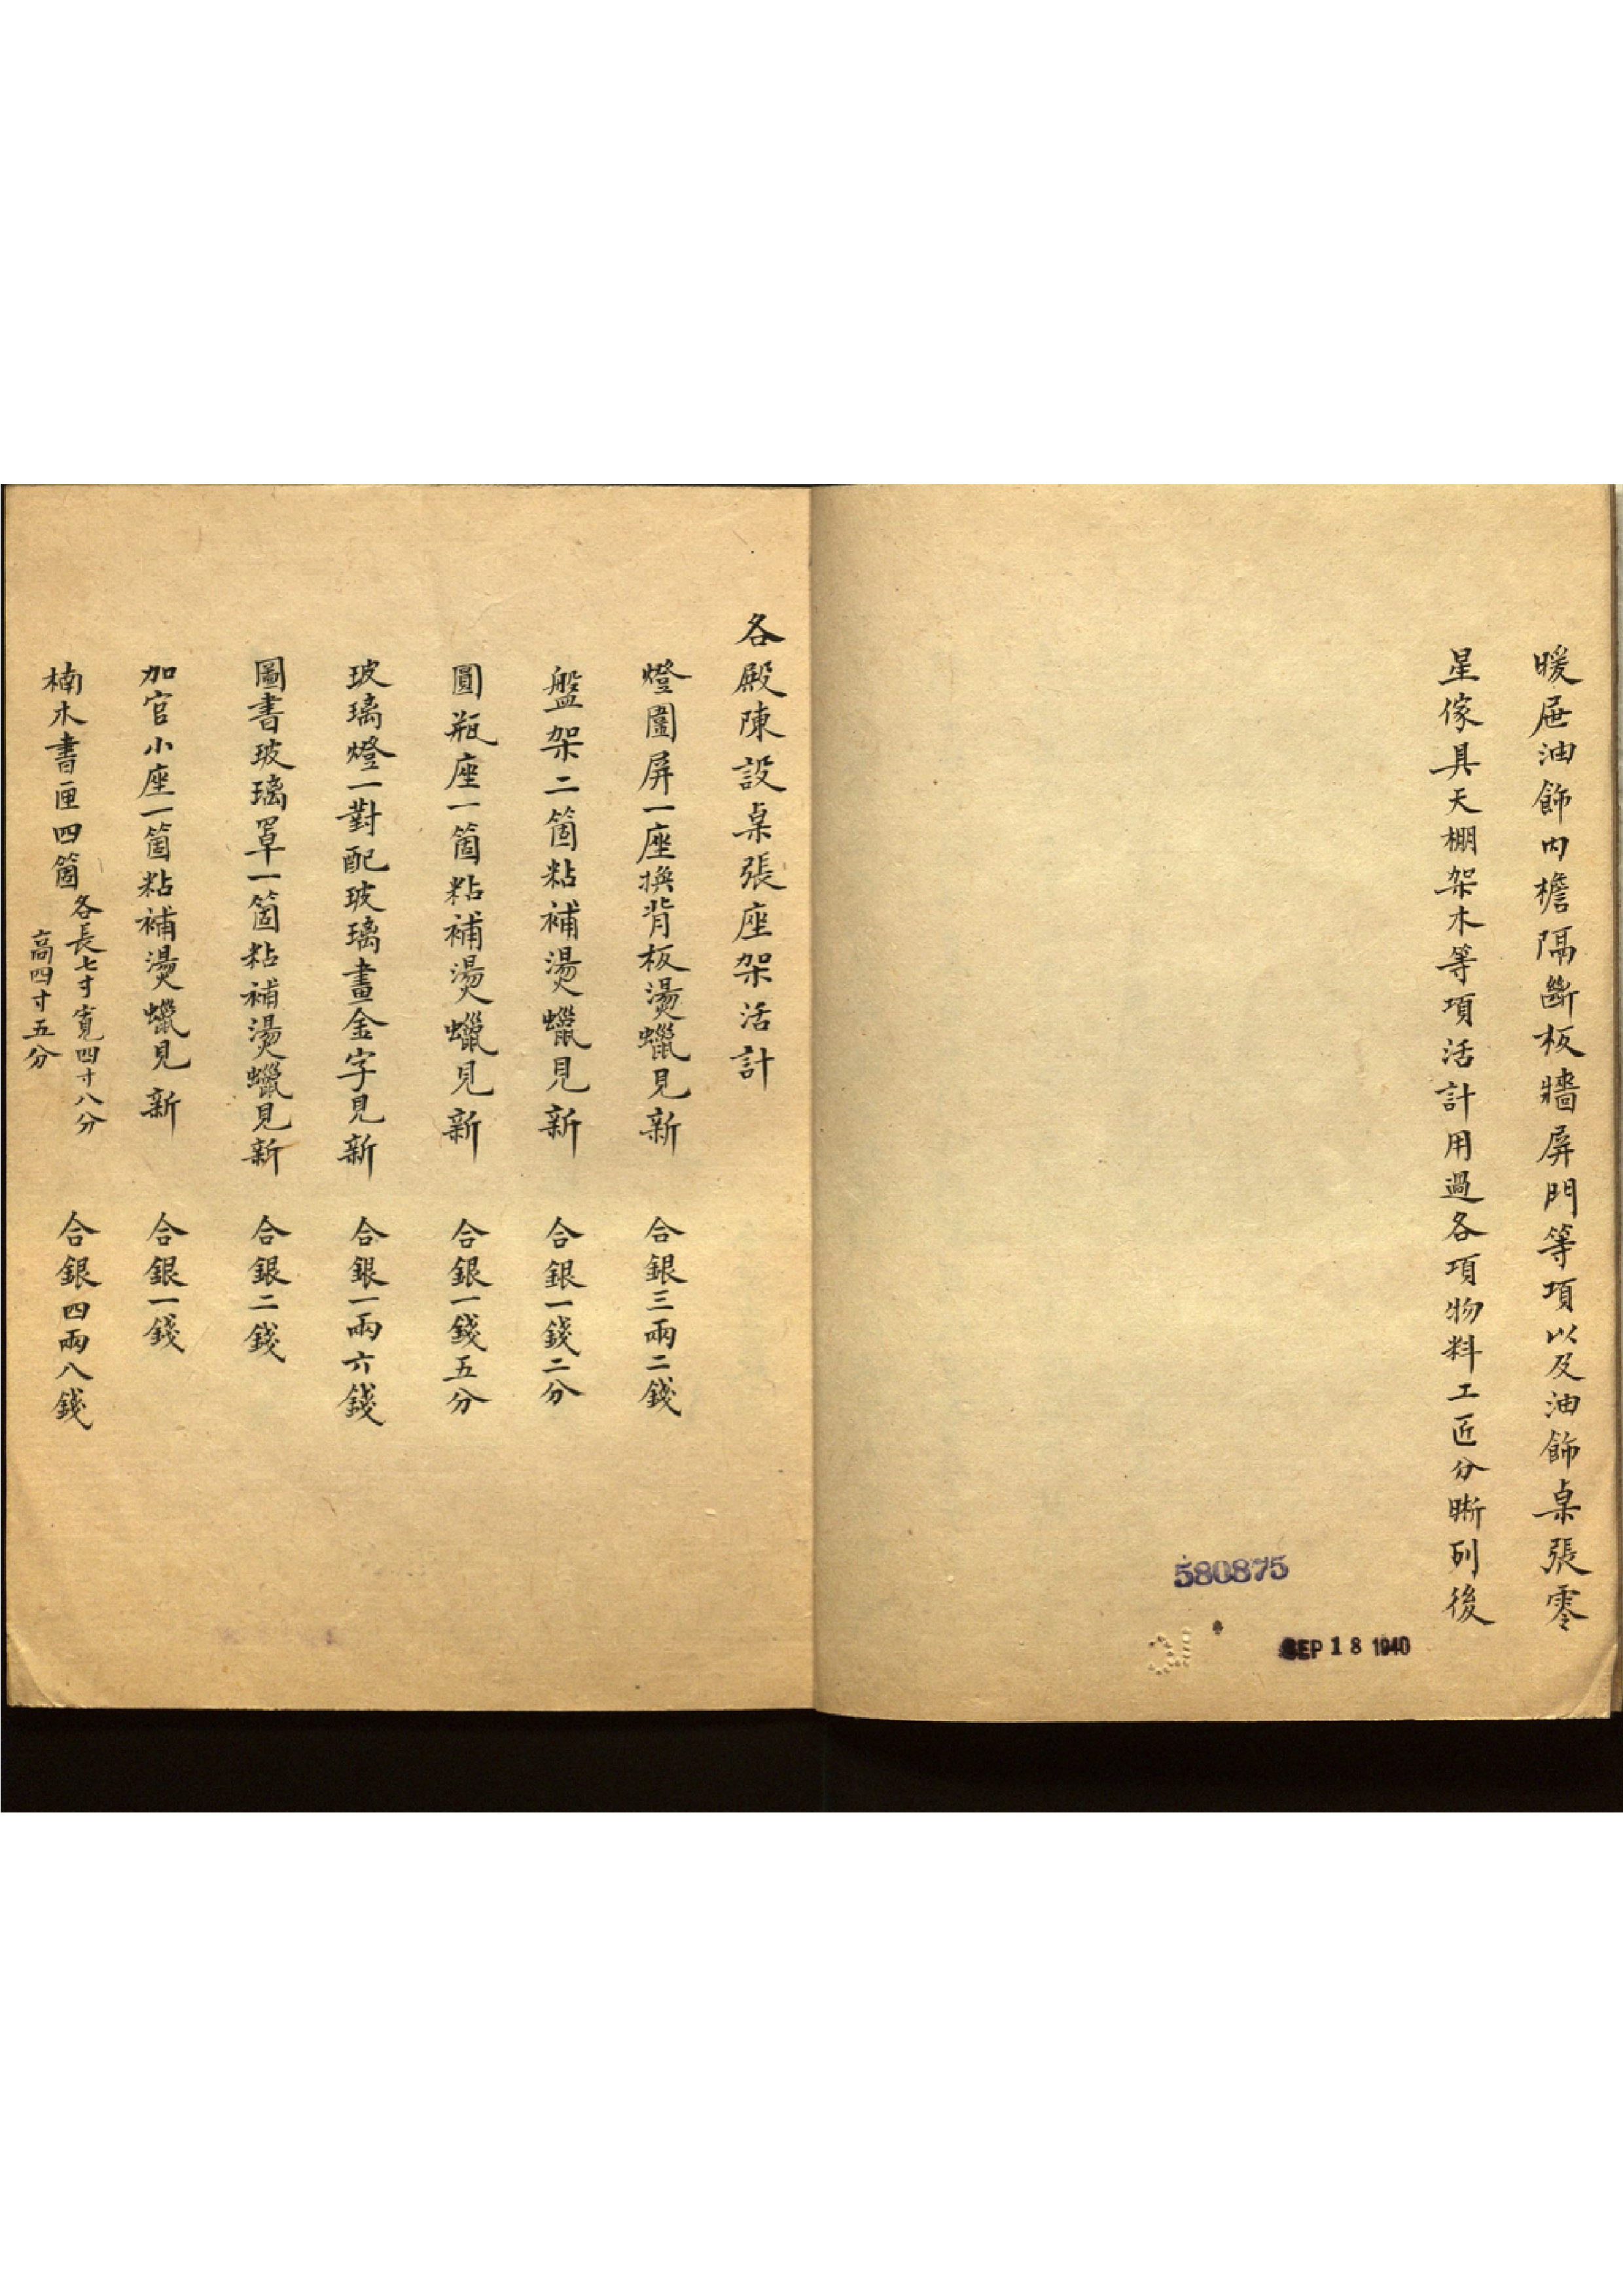 暖屉油飾內檐隔斷板牆屏門等項以及油飾桌張零
星傢具天棚架木等項活計用過各項物料工匠分晰列後
580875
SEP 18 1940
各殿陳設桌張座架活計
燈圍屏一座換背板燙蠟見新 合銀三兩二錢
盤架二箇粘補燙蠟見新 合銀一錢二分
圓瓶座一箇粘補燙蠟見新 合銀一錢五分
玻璃燈一對配玻璃畫金字見新 合銀一兩六錢
圖書玻璃罩一箇粘補燙蠟見新 合銀二錢
加官小座一箇粘補燙蠟見新 合銀一錢
楠木書匣四箇 各長七寸寬四寸八分 高四寸五分 合銀四兩八錢